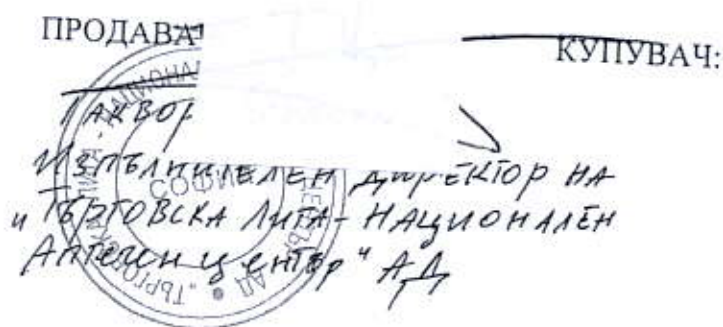 ПРОДАВА
КУПУВАЧ:
ИЗПЪЛНИТЕЛЕН ДИРЕКТОР НА
"ТЪРГОВСКА ЛИГА - НАЦИОНАЛЕН
АПТЕЧЕН ЦЕНТЪР" АД
СОФИЯ